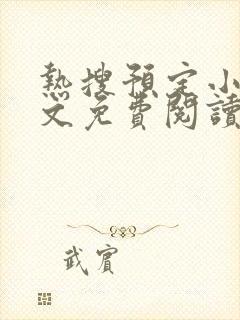 熱搜預定小
文免費閱讀
武賓